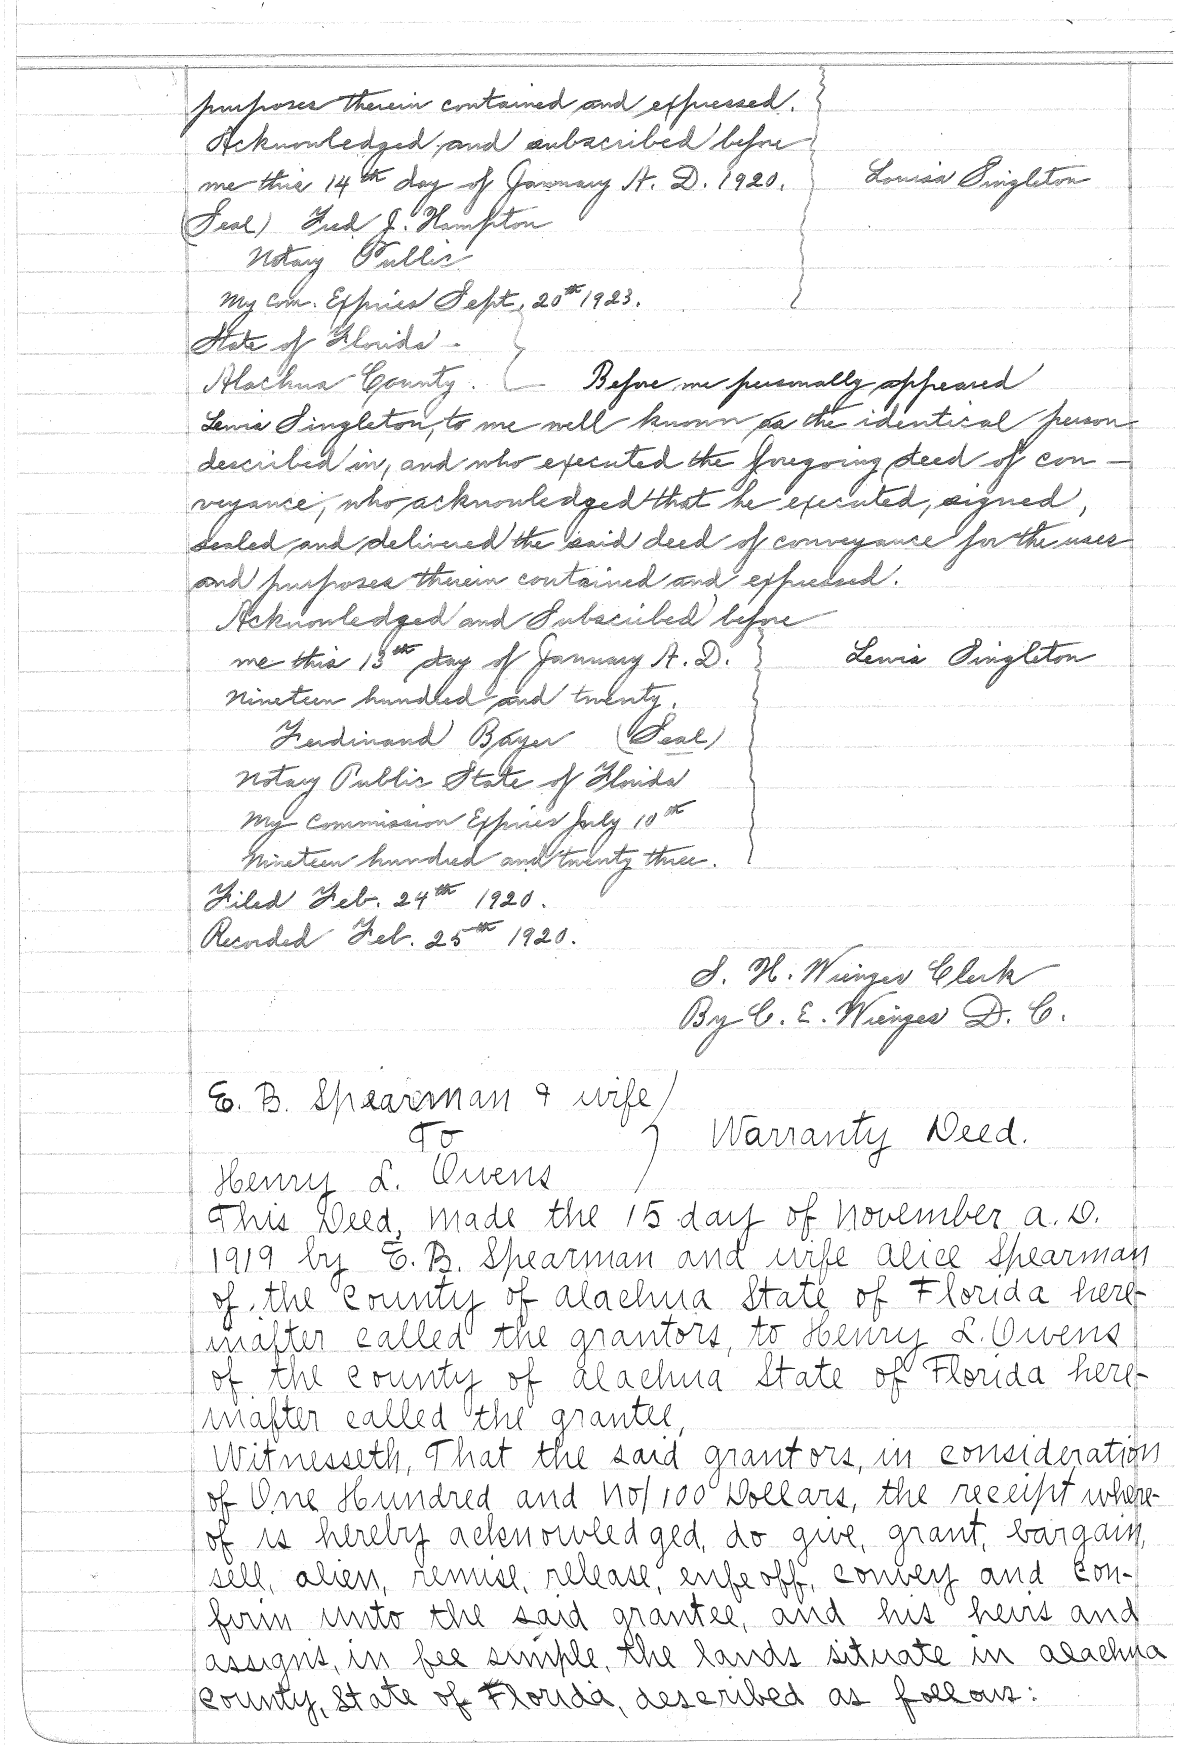 purposes therein contained and expressed.
Acknowledged and subscribed before
me this 14th day of January A. D. 1920. Louisa Singleton
(Seal) Fred J. Hampton
Notary Public
My com. Expires Sept. 20th 1923.
State of Florida
Alachua County. Before me personally appeared
Lewis Singleton, to me well known as the identical person
described in, and who executed the foregoing deed of con-
veyance, who acknowledged that he executed, signed,
sealed and delivered the said deed of conveyance for the uses
and purposes therein contained and expressed.
Acknowledged and Subscribed before
me this 13th day of January A. D. Lewis Singleton
Nineteen hundred and twenty.
Ferdinand Bayer (Seal)
Notary Public State of Florida
My Commission Expires July 10th
Nineteen hundred and twenty three.
Filed Feb. 24th 1920.
Recorded Feb. 25th 1920.
S. H. Wienges Clerk
By C. E. Wienges D. C.
E. B. Spearman & wife
To Warranty Deed.
Henry L. Owens
This Deed, Made the 15 day of November A. D.
1919 by E. B. Spearman and wife Alice Spearman
of the County of Alachua State of Florida here-
inafter called the grantors, to Henry L. Owens
of the County of Alachua State of Florida here-
inafter called the grantee,
Witnesseth, That the said grantors, in consideration
of One Hundred and No/100 Dollars, the receipt where-
of is hereby acknowledged, do give, grant, bargain,
sell, alien, remise, release, enfeoff, convey and con-
firm unto the said grantee, and his heirs and
assigns, in fee simple, the lands situate in Alachua
County, State of Florida, described as follows: